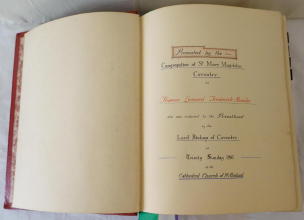 Presented by the
Congregation of St Mary Magdalen
Coventry
to
Leonard Frederick
who was ordained to the Priesthood
by the
Lord Bishop of Coventry
on
Trinity Sunday
in the
Cathedral Church of St Michael